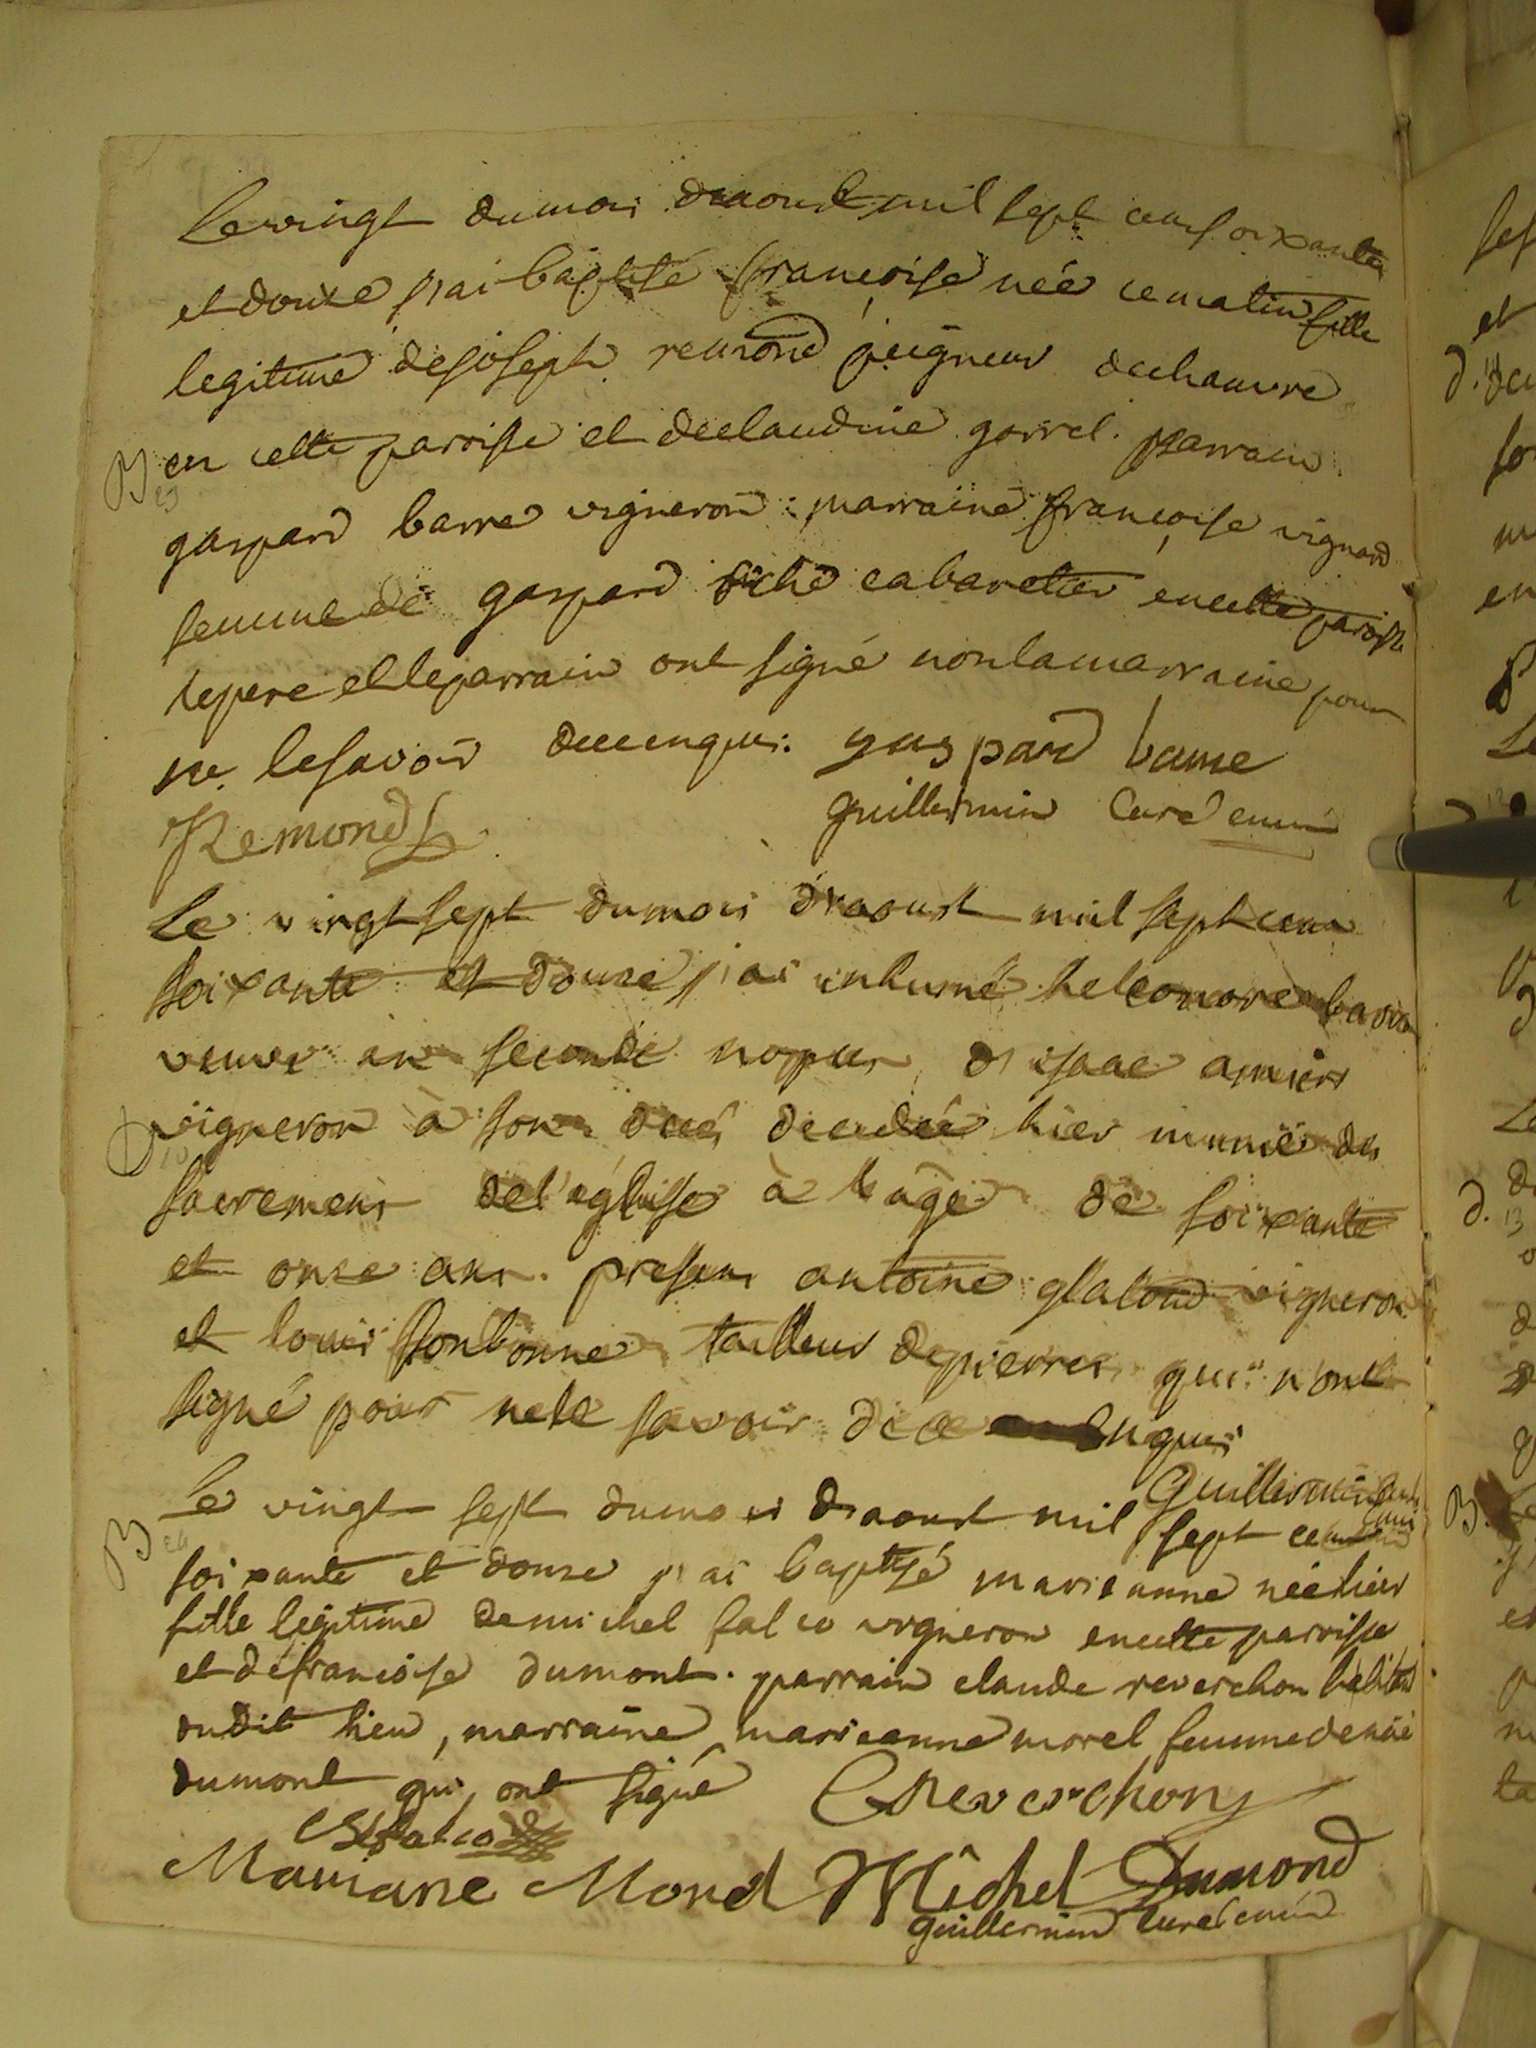 Le vingt du mois d'aoust mil sept cens soixante
et douze j'ai baptisé françoise née ce matin fille
legitime de joseph remond peigneur de chanvre
B 23 en cette paroisse et de claudine gorrel. parrain
gaspard barre vigneron: marraine françoise vignard
femme de gaspard cabaretier en cette paroisse
le pere et le parrain ont signé non la marraine pour
ne le savoir de ce enquis. gaspard barre
Remond guillermin Curé
Le vingt sept du mois d'aoust mil sept cens
soixante et douze j'ai inhumé heleonore barre
veuve en seconde nopces d'isaac
D 10 vigneron à son decés decedée hier munie des
sacremens de l'église à l'age de soixante
et onze ans. presens antoine vigneron
et louis tailleur de pierres qui n'ont
signé pour ne le savoir de ce enquis
Guillermin Curé
B 24 Le vingt sept du mois d'aoust mil sept cens
soixante et douze j'ai baptisé marieanne née hier
fille legitime de michel falco vigneron en cette paroisse
et de françoise dumont. parrain claude reverchon habitant
dudit lieu, marraine marieanne morel femme de
dumont qui ont signé C Reverchon
falco
Mariane Morel Michel Dumond
guillermin curé